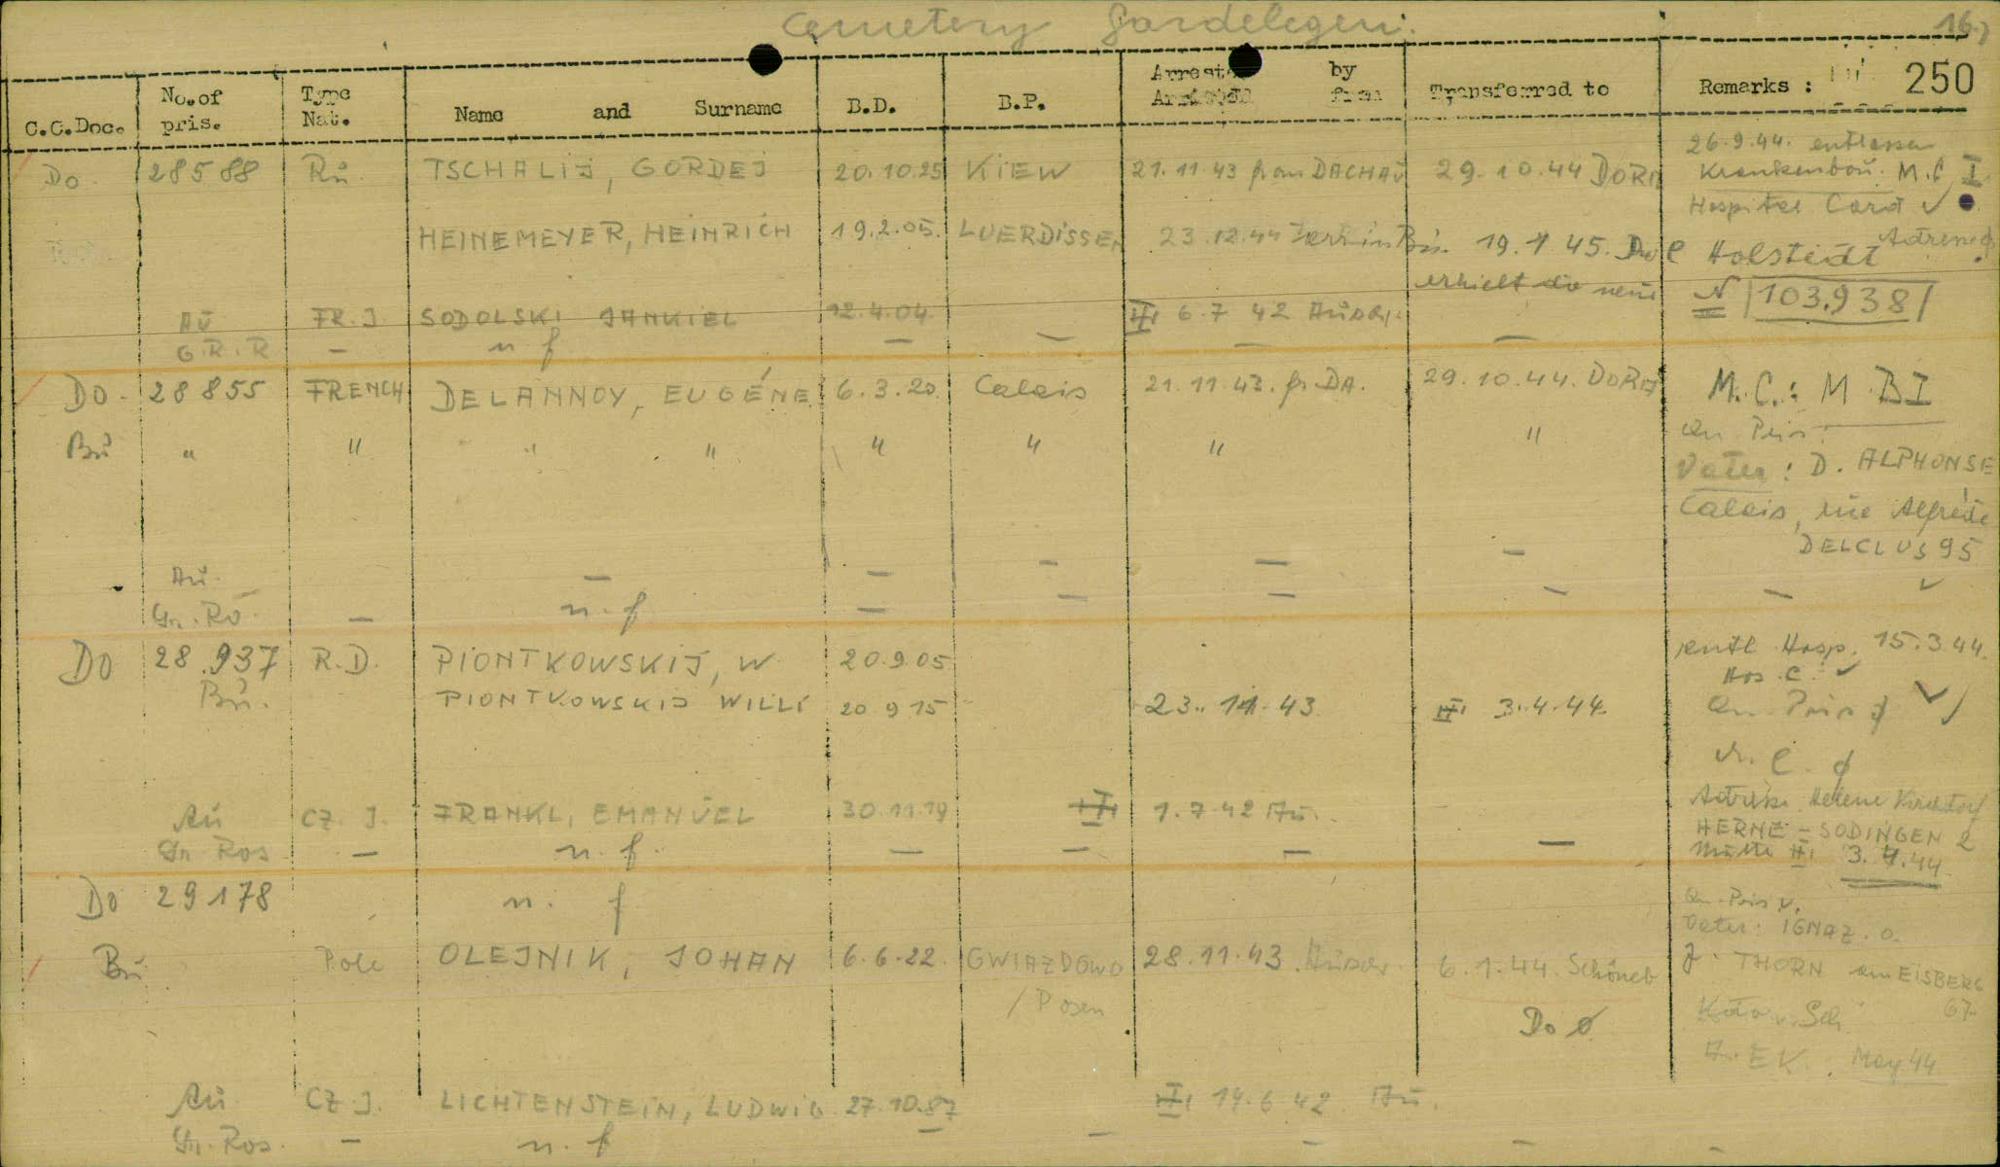 Cemetery Gardelegen. 16.)
C.C.Doc. No. of pris. Type Nat. Name and Surname B.D. B.P. Arrested by Transferred to Remarks : 250
26.9.44. entlassen
Do. 28588 Rü. TSCHALIJ, GORDEJ 20.10.25 KIEW 21.11.43 from DACHAU 29.10.44 DORA Krankenbau. M.C I
Hospital Card ✓
HEINEMEYER, HEINRICH 19.2.05. LUERDISSEN 23.12.44 Bu. 19.1 45. Holstedt
erhielt die neue N 103.938
AU FR.J. SODOLSKI JANKIEL 12.4.04. — III 6.7 42 Ausch. —
G.R.R — n f — —
DO. 28855 FRENCH DELANNOY, EUGÉNE 6.3.20. Calais 21.11.43. fr. DA. 29.10.44. DORA M.C.: M.BI
Bu " " " " " " " " Qu Pris.
Vater: D. ALPHONSE
Calais, rue Alfred
DELCLUS 95
Au. — — — — — ✓
Gr. Ro. — n. f — — — — —
DO 28.937 R.D. PIONTKOWSKIJ, W 20.9.05 entl. Hosp. 15.3.44.
Hos. C. ✓
Bu. PIONTKOWSKIJ WILLI 20 9 15 23. 11. 43 III 3.4.44. Qu. Pris ✓
Au CZ. J. FRANKL, EMANUEL 30.11.19 III 1.7.42 Au. Helene
HERNE - SODINGEN 2
Gr Ros — n. f. — — — — III 3.4.44
Do 29178 n. f Qu. Pris
Vater: IGNAZ. O.
Bu Pole OLEJNIK, JOHAN 6.6.22. GWIAZDOWO 28.11.43. Ausch. 6.1.44. Schöneb THORN am EISBERG
/ Posen Do 67.
Sch.
May 44
Au CZ. J. LICHTENSTEIN, LUDWIG 27.10.87 III 14.6 42 Au.
Gr. Ros. — n. f — — — —